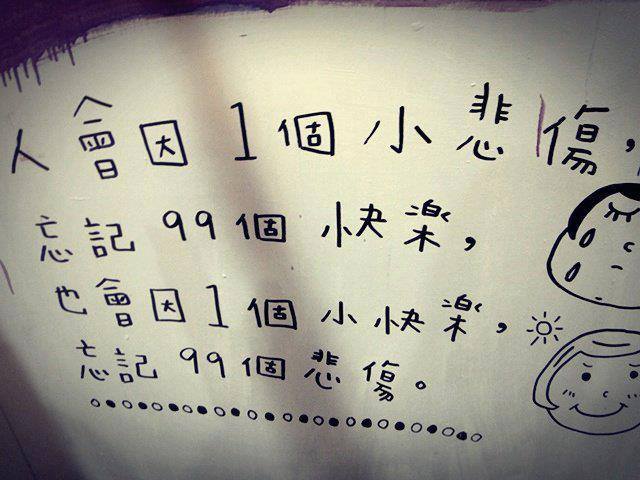 人會因1個小悲傷，
忘記99個快楽，
也會因1個小快楽，
忘記99個悲傷。